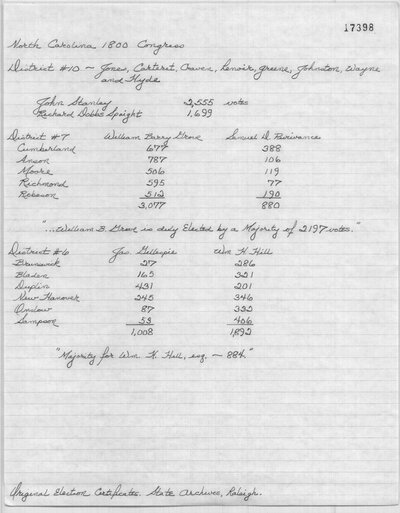 17398
North Carolina 1800 Congress
District #10 ~ Jones, Carteret, Craven, Lenoir, Greene, Johnston, Wayne
and Hyde
John Stanley 2,555 votes
Richard Dobbs Spaight 1,699
District #7 William Barry Grove Samuel D. Purviance
Cumberland 677 388
Anson 787 106
Moore 506 119
Richmond 595 77
Robeson 512 190
3,077 880
"...William B. Grove is duly Elected by a Majority of 2197 votes."
District #6 Jas. Gillespie Wm H. Hill
Brunswick 27 286
Bladen 165 321
Duplin 431 201
New Hanover 245 346
Onslow 87 332
Sampson 53 406
1,008 1,892
"Majority for Wm. H. Hill, esq. ~ 884"
Original Election Certificates. State Archives, Raleigh.